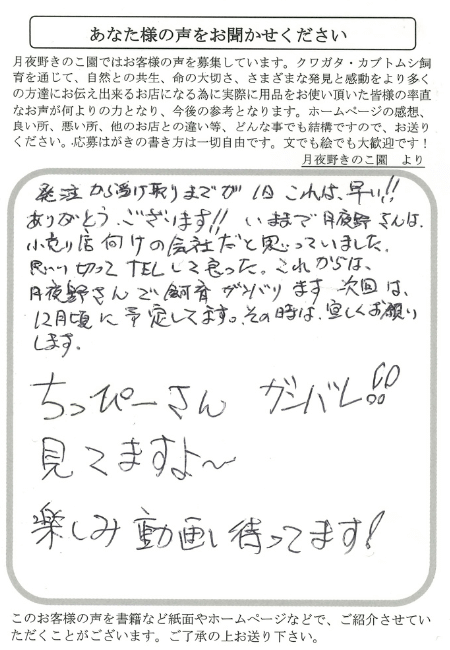 あなた様の声をお聞かせください
月夜野きのこ園ではお客様の声を募集しています。クワガタ・カブトムシ飼
育を通じて、自然との共生、命の大切さ、さまざまな発見と感動をより多く
の方達にお伝え出来るお店になる為に実際に用品をお使い頂いた皆様の率直
なお声が何よりの力となり、今後の参考となります。ホームページの感想、
良い所、悪い所、他のお店との違い等、どんな事でも結構ですので、お送り
ください。応募はがきの書き方は一切自由です。文でも絵でも大歓迎です！
月夜野きのこ園　より
発注から受け取りまでが1日 これは、早い!!
ありがとうございます!! いままで月夜野さんは、
小売り店向けの会社だと思っていました。
思い切ってTELして良った。これからは、
月夜野さんで飼育ガンバります 次回は、
12月頃に予定してます。その時は、宜しくお願い
します。
ちっぴーさん ガンバレ!!
見てますよ〜
楽しみ動画し待ってます!
このお客様の声を書籍など紙面やホームページなどで、ご紹介させてい
ただくことがございます。ご了承の上お送り下さい。